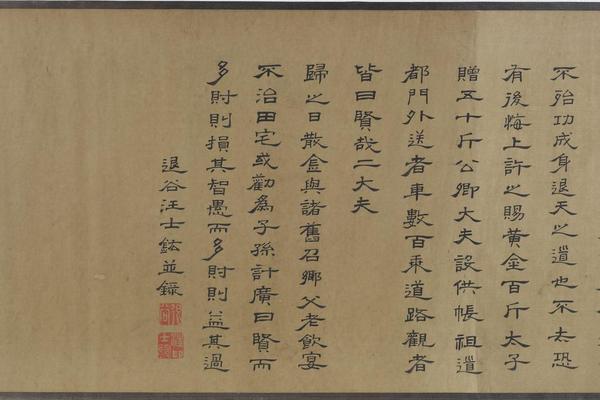 不殆功成身退天之道也不去恐
有後悔上許之賜黃金百斤太子
贈五十斤公卿大夫設供帳祖道
都門外送者車數百乘道路觀者
皆曰賢哉二大夫
歸之日散金與諸舊召鄉父老飲宴
不治田宅或勸為子孫計廣曰賢而
多財則損其智愚而多財則益其過
退谷汪士鋐並錄